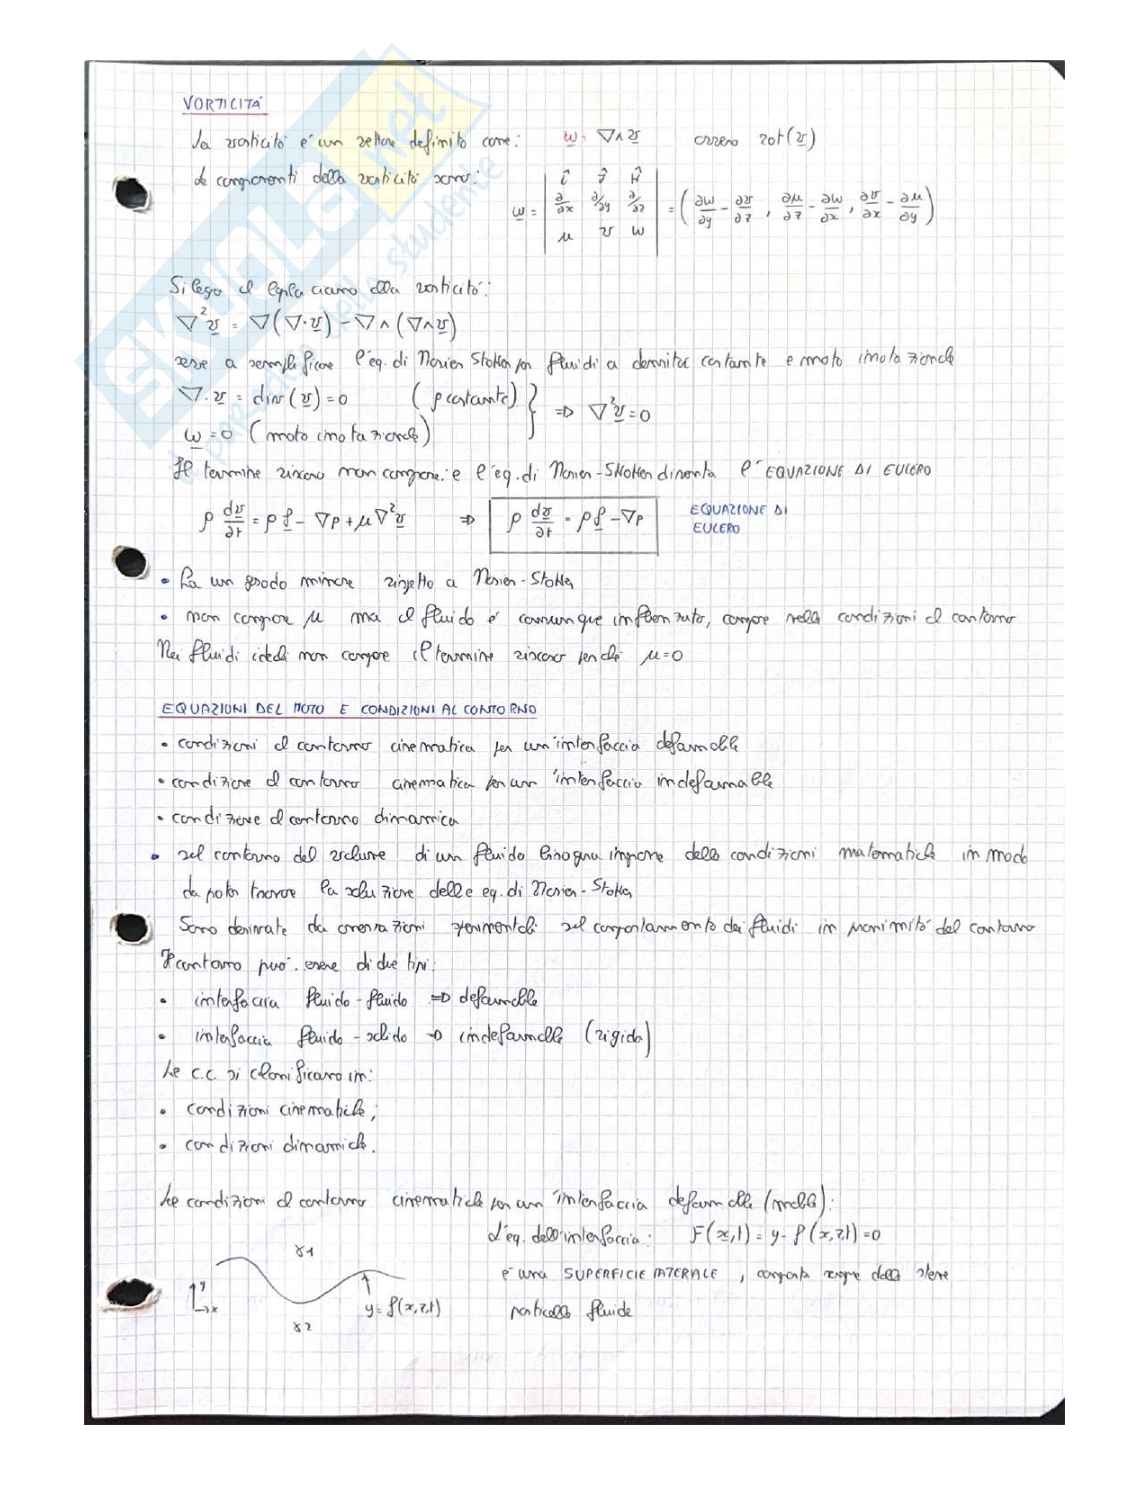 VORTICITÀ
La vorticità è un vettore definito come: ω = ∇∧v ovvero rot(v)
Le componenti della vorticità sono:
ω = | î ĵ k̂ ; ∂/∂x ∂/∂y ∂/∂z ; u v w | = (∂w/∂y - ∂v/∂z , ∂u/∂z - ∂w/∂x , ∂v/∂x - ∂u/∂y)
Si lega il laplaciano alla vorticità:
∇²v = ∇(∇·v) - ∇∧(∇∧v)
serve a semplificare l'eq. di Navier Stokes per fluidi a densità costante e moto irrotazionale
∇·v = div(v) = 0 (ρ costante) } ⇒ ∇²v = 0
ω = 0 (moto irrotazionale)
Il termine viscoso non compare: e l'eq. di Navier-Stokes diventa l'EQUAZIONE DI EULERO
ρ dv/∂t = ρf - ∇p + μ∇²v ⇒ ρ dv/∂t = ρf - ∇p EQUAZIONE DI
EULERO
• ha un grado minore rispetto a Navier-Stokes
• non compare μ ma il fluido è comunque influenzato, compare nelle condizioni al contorno
Nei fluidi ideali non compare il termine viscoso perché μ=0
EQUAZIONI DEL MOTO E CONDIZIONI AL CONTORNO
• condizioni al contorno cinematica per un'interfaccia deformabile
• condizione al contorno cinematica per un'interfaccia indeformabile
• condizione al contorno dinamica
• sul contorno del volume di un fluido bisogna imporre delle condizioni matematiche in modo
da poter trovare la soluzione delle eq. di Navier-Stokes
Sono derivate da osservazioni sperimentali sul comportamento dei fluidi in prossimità del contorno
Il contorno può essere di due tipi:
• interfaccia fluido-fluido ⇒ deformabile
• interfaccia fluido-solido → indeformabile (rigida)
Le c.c. si classificano in:
• condizioni cinematiche;
• condizioni dinamiche.
Le condizioni al contorno cinematiche per un'interfaccia deformabile (mobile):
L'eq. dell'interfaccia: F(x,t) = y - f(x,z,t) = 0
è una SUPERFICIE MATERIALE, composta sempre dalle stesse
particelle fluide
γ1
y
x
y = f(x,z,t)
γ2
SKUOLA.net